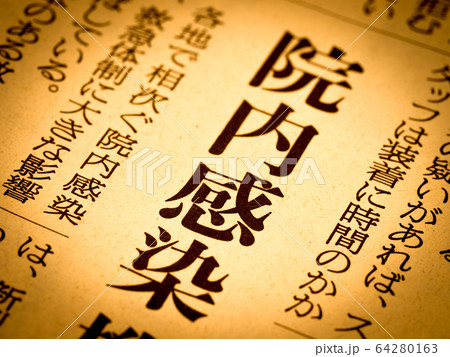 の疑いがあれば、ス
タッフは装着に時間のかか
院内感染
各地で相次ぐ院内感染
救急体制に大きな影響
している。
のある救
は、新
PIXTA
64280163